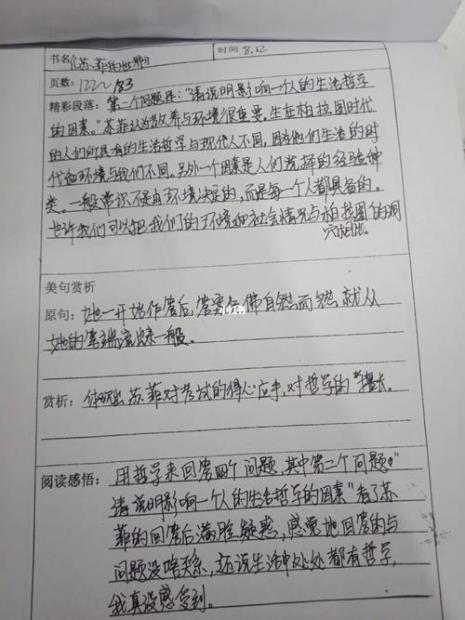 书名《苏菲的世界》 时间 8.12
页数：122~183
精彩段落：第二个问题是："请说明影响一个人的生活哲学
的因素。"苏菲认为教养与环境很重要。生在柏拉图时代
的人们所具有的生活哲学与现代人不同，因为他们生活的时
代和环境与我们不同。另外一个因素是人们选择的经验种
类。一般常识不是由环境决定的，而是每一个人都具备的。
也许我们可以把我们的环境和社会情况与柏拉图的洞
穴相比。
美句赏析
原句：她一开始作答后，答案仿佛自然而然就从
她的笔端流出来一般。
赏析：体现出苏菲对考试的得心应手，对哲学的擅长。
阅读感悟：用哲学来回答四个问题，其中第二个问题："
请说明影响一个人的生活哲学的因素"看了苏
菲的回答后满脸疑惑，感觉她回答的与
问题没啥关系，还说生活中处处都有哲学，
我真没感受到。